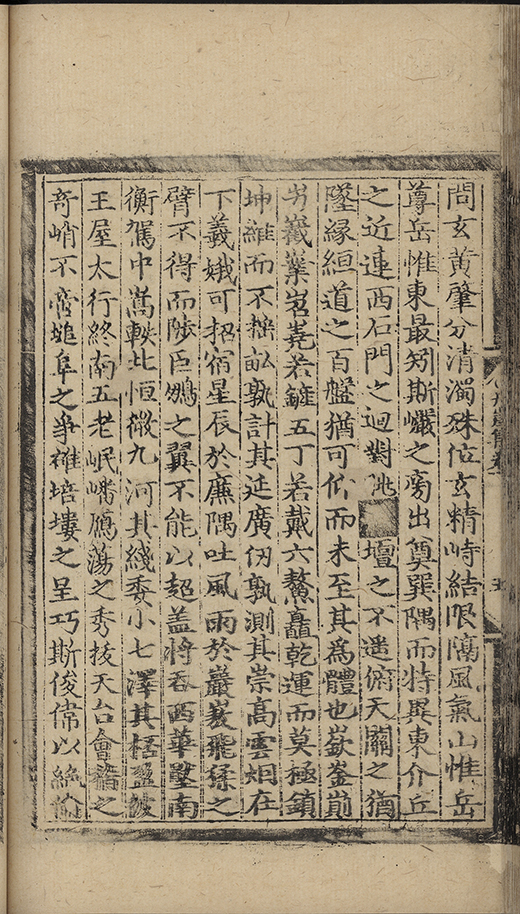 問玄黃肇分清濁殊位玄精峙結限隔風氣山惟岳
尊岳惟東最矧斯巘之旁出奠巽隅而特異東介丘
之近連西石門之迥對 壇之不遥俯天關之猶
墜緣絙道之百盤猶可 而未至其爲體也嶔崟
岝嶻嶪岧嶤若 五丁若戴六鰲矗乾運而莫極鎮
坤維而不揺 孰計其延廣仞孰測其崇高雲烟在
下羲娥可招宿星辰於廉隅吐風雨於巖 飛猱之
臂不得而陟巨鷃之翼不能以超盖將吞西華壓南
衡駕中嵩軼北恒 九河其綫委小七澤其桮
王屋太行終南五老岷嶓鴈蕩之秀拔天台會稽之
奇峭不啻堆阜之爭雄培塿之呈巧斯俊偉以絶
卷